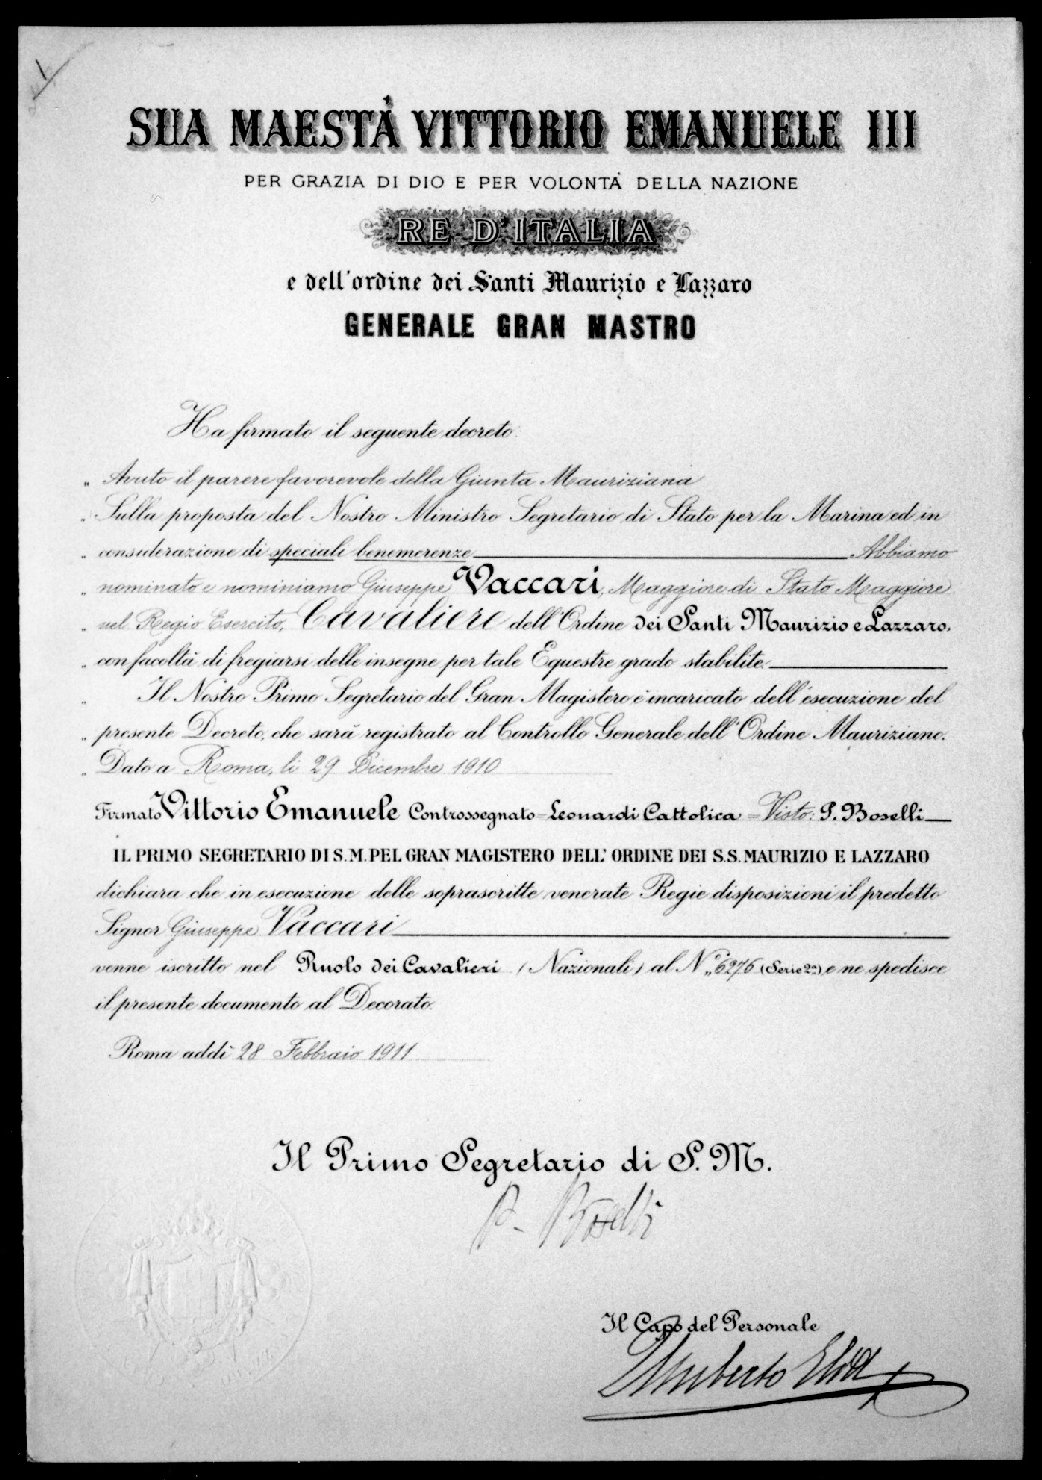 1
SUA MAESTÀ VITTORIO EMANUELE III
PER GRAZIA DI DIO E PER VOLONTÀ DELLA NAZIONE
RE D'ITALIA
e dell'ordine dei Santi Maurizio e Lazzaro
GENERALE GRAN MASTRO
Ha firmato il seguente decreto:
" Avuto il parere favorevole della Giunta Mauriziana
" Sulla proposta del Nostro Ministro Segretario di Stato per la Marina ed in
" considerazione di speciali benemerenze Abbiamo
" nominato e nominiamo Giuseppe Vaccari, Maggiore di Stato Maggiore
" nel Regio Esercito, Cavaliere dell'Ordine dei Santi Maurizio e Lazzaro,
" con facoltà di fregiarsi delle insegne per tale Equestre grado stabilite.
" Il Nostro Primo Segretario del Gran Magistero è incaricato dell'esecuzione del
" presente Decreto, che sarà registrato al Controllo Generale dell'Ordine Mauriziano.
" Dato a Roma, li 29 Dicembre 1910
Firmato Vittorio Emanuele Controssegnato = Leonardi Cattolica = Visto: P. Boselli
IL PRIMO SEGRETARIO DI S. M. PEL GRAN MAGISTERO DELL' ORDINE DEI S.S. MAURIZIO E LAZZARO
dichiara che in esecuzione delle soprascritte venerate Regie disposizioni il predetto
Signor Giuseppe Vaccari
venne iscritto nel Ruolo dei Cavalieri (Nazionali) al N.° 6276 (Serie 2ª) e ne spedisce
il presente documento al Decorato.
Roma addì 28 Febbraio 1911
Il Primo Segretario di S. M.
P. Boselli
Il Capo del Personale
Umberto